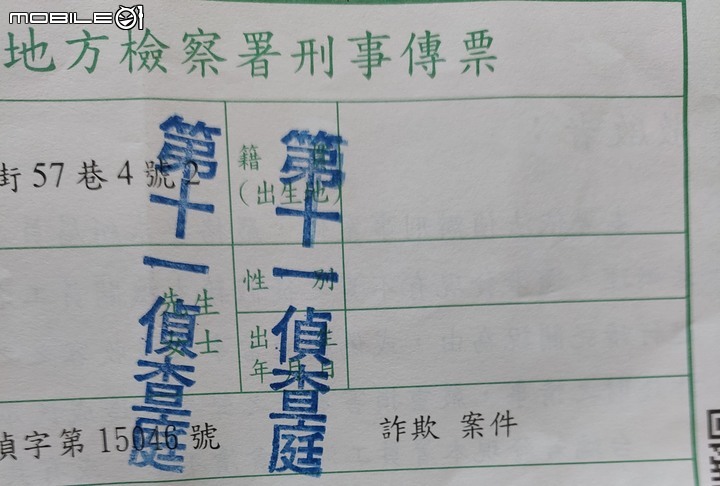 MOBILE01
地方檢察署刑事傳票
街57巷4號2
籍
(出生地)
性 別
先生
女士
出 生
年月日
第十一偵查庭
第十一偵查庭
偵字第15046號
詐欺 案件